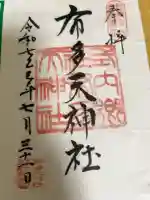 奉拝
布多天神社
令和七年七月三十一日